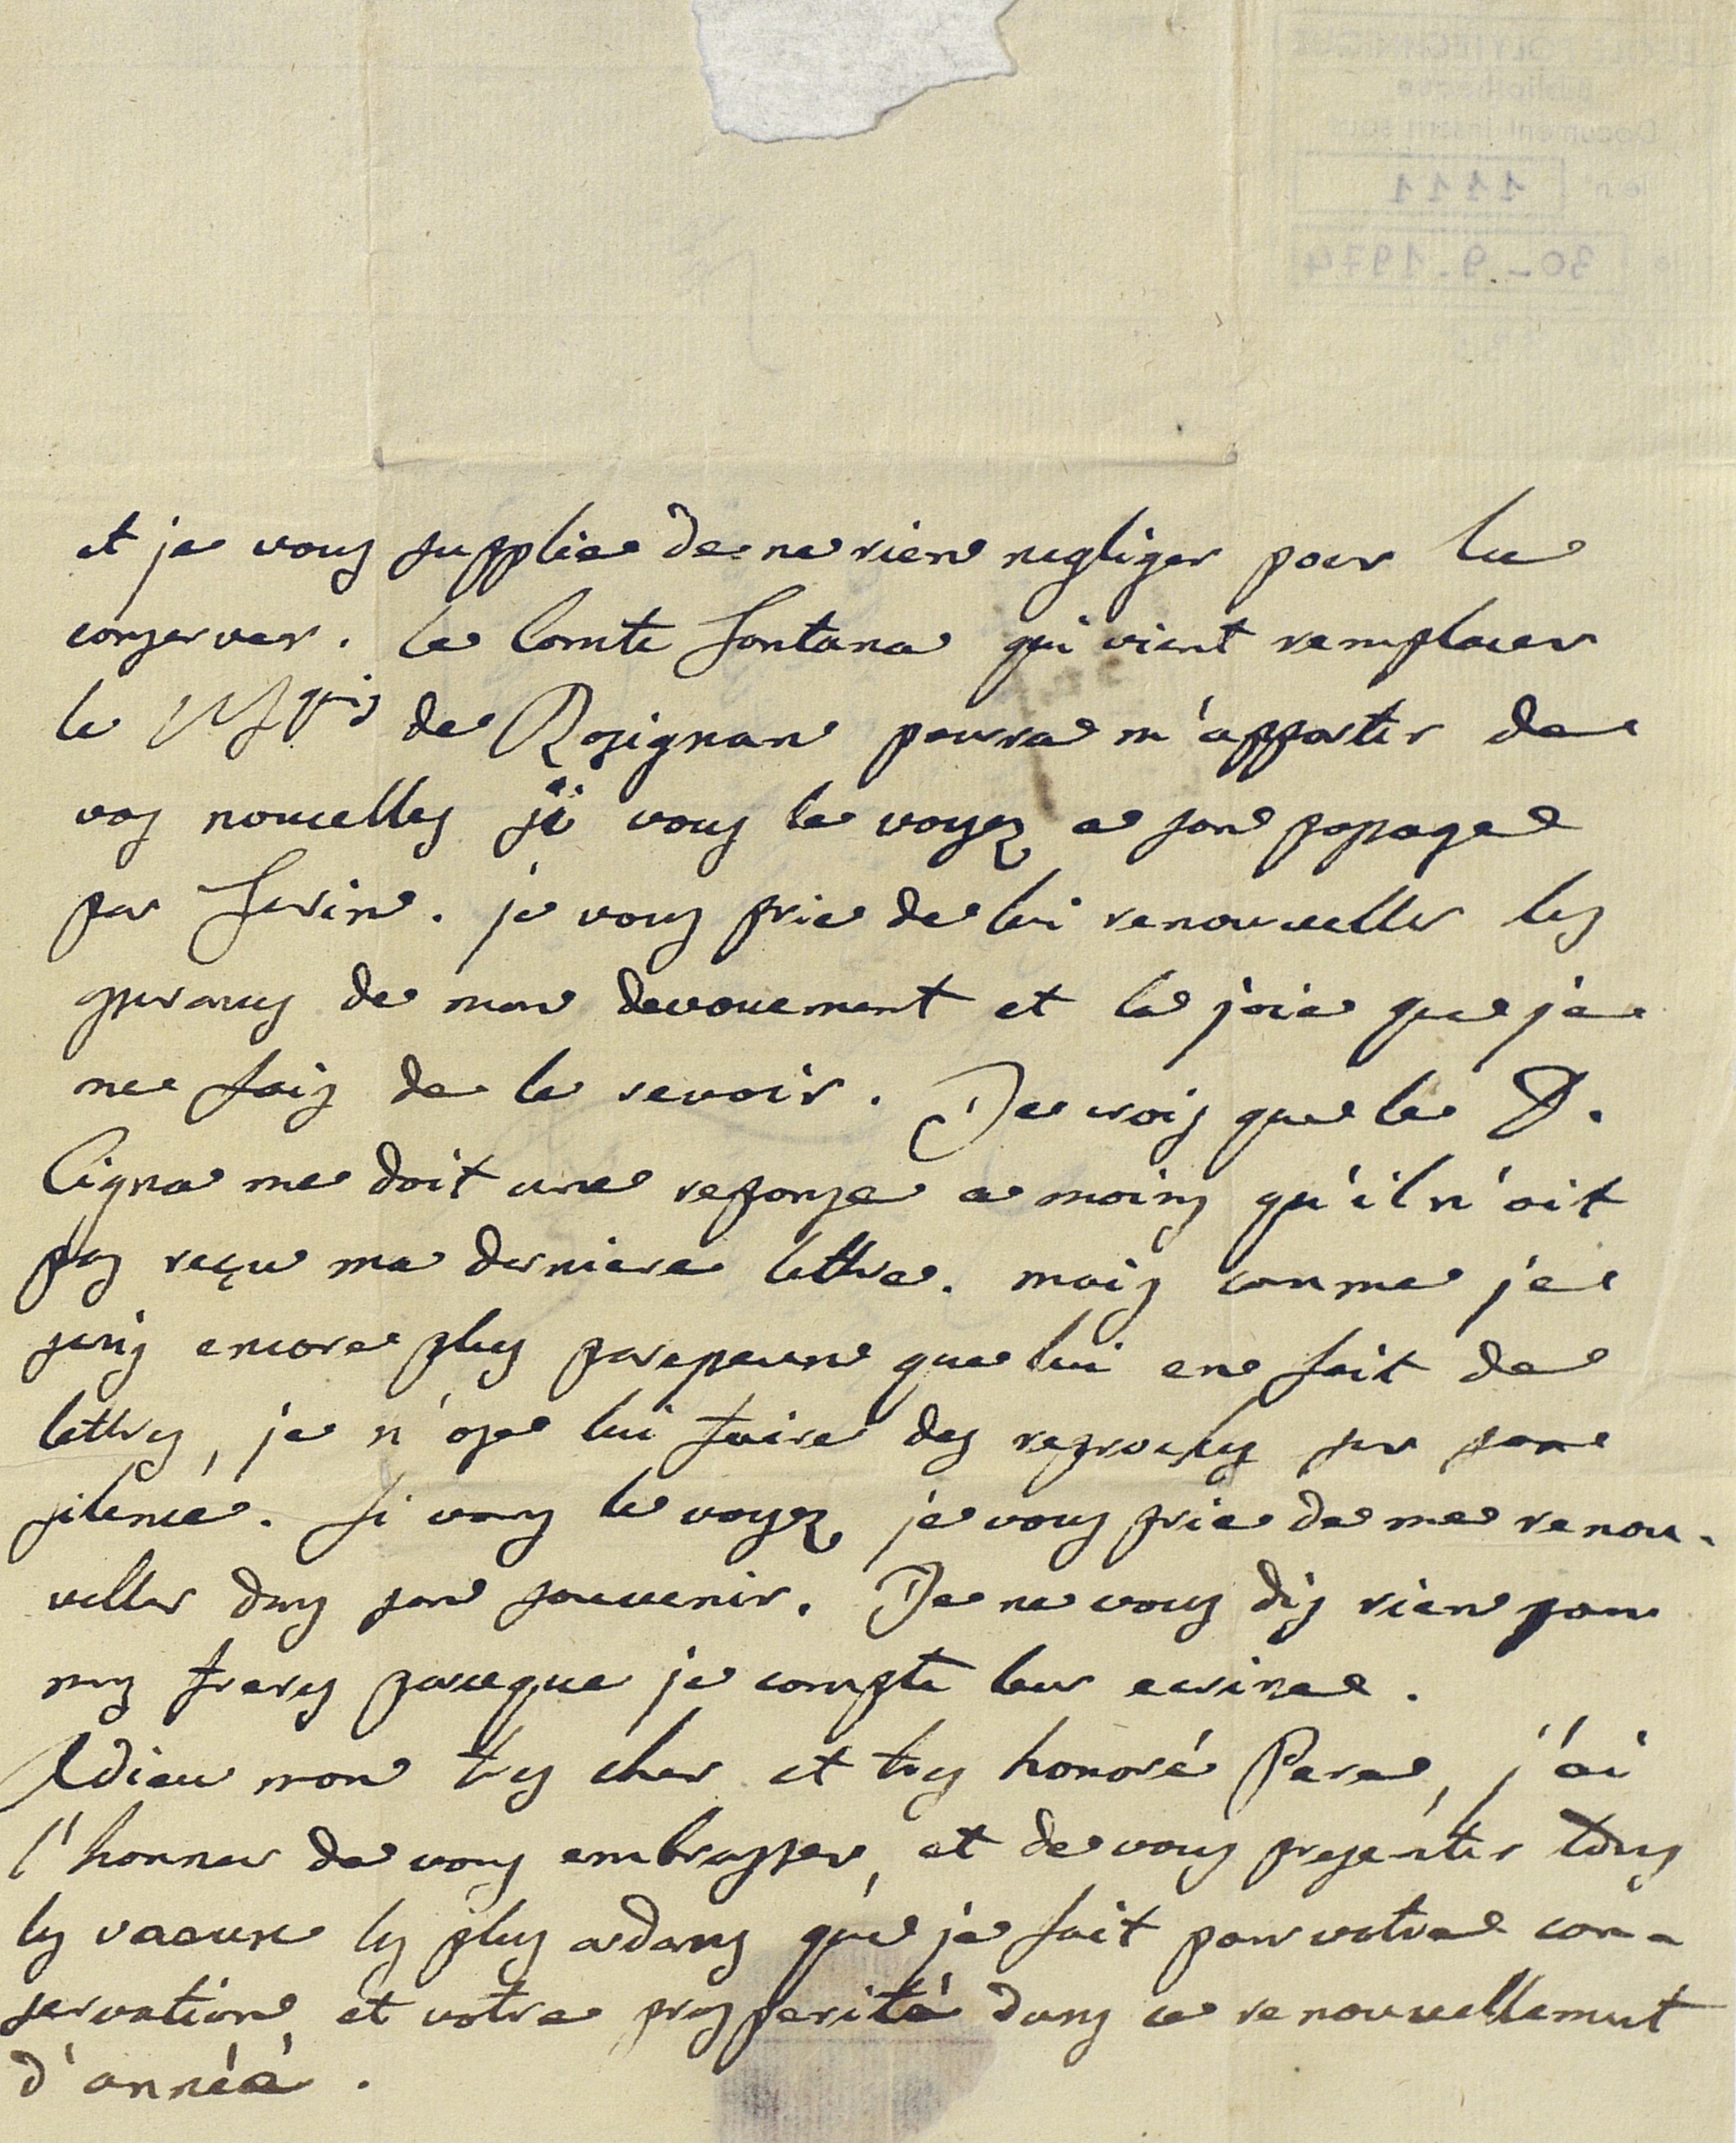 et je vous supplie de ne rien negliger pour la
conserver. Le Comte Fontana qui vient remplacer
le M.quis de Rosignan pourra m'apporter de
vos nouvelles si vous le voyez a son passage
par Turin. je vous prie de lui renouveller les
assurances de mon devouement et la joie que je
me fais de le revoir. Je crois que le D.
Cigna me doit une reponse a moins qu'il n'ait
pas reçu ma derniere lettre. mais comme je
suis encore plus paresseux que lui en fait de
lettres, je n'ose lui faire des reproches sur son
silence. Si vous le voyez je vous prie de me renou-
veller dans son souvenir. Je ne vous dis rien pour
mes freres parceque je compte leur ecrire.
Adieu mon tres cher et tres honoré Pere, j'ai
l'honneur de vous embrasser, et de vous presenter tous
les voeux les plus ardans que je fait pour votre con-
servation et votre prosperité dans ce renouvellement
d'année.
1111
30-9-1974